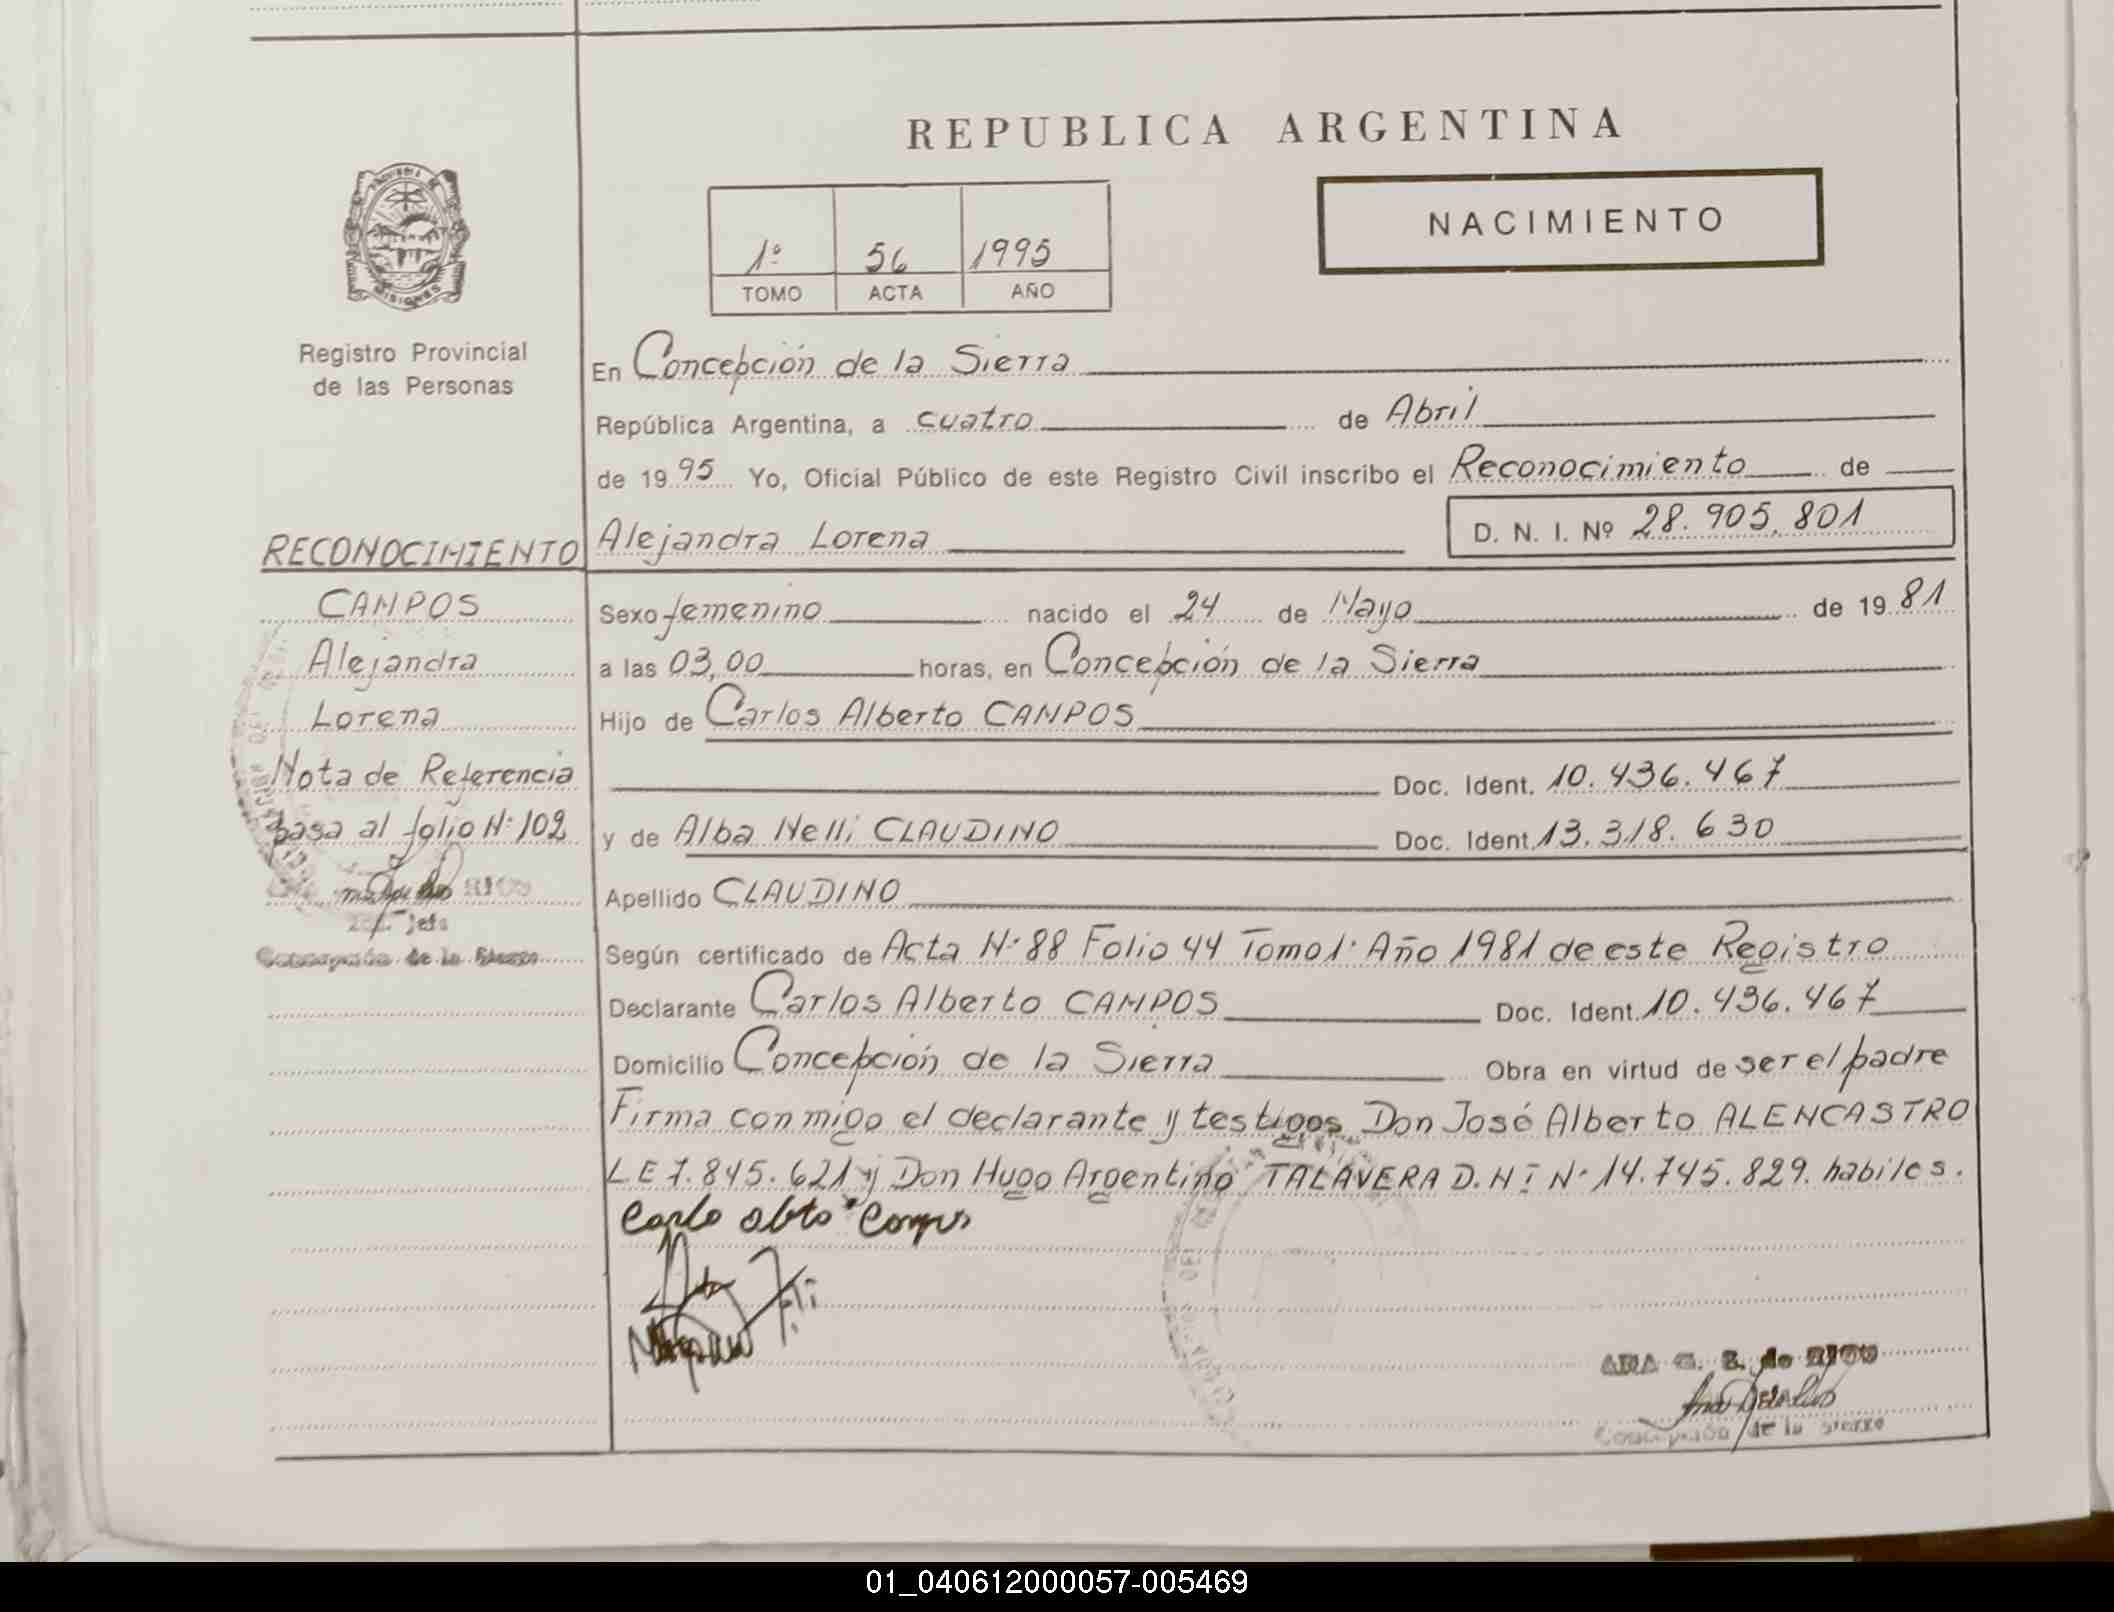 REPUBLICA ARGENTINA
PROVINCIA DE MISIONES
1º 56 1995
TOMO ACTA AÑO
NACIMIENTO
Registro Provincial
de las Personas
En Concepción de la Sierra
República Argentina, a cuatro de Abril
de 19 95 Yo, Oficial Público de este Registro Civil inscribo el Reconocimiento de
Alejandra Lorena D. N. I. Nº 28.905.801
Sexo femenino nacido el 24 de Mayo de 19 81
a las 03,00 horas, en Concepción de la Sierra
Hijo de Carlos Alberto CAMPOS
Doc. Ident. 10.436.467
y de Alba Nelli CLAUDINO Doc. Ident. 13.318.630
Apellido CLAUDINO
Según certificado de Acta Nº 88 Folio 44 Tomo 1º Año 1981 de este Registro
Declarante Carlos Alberto CAMPOS Doc. Ident. 10.436.467
Domicilio Concepción de la Sierra Obra en virtud de ser el padre
Firma conmigo el declarante y testigos Don José Alberto ALENCASTRO
LE 7.845.621 y Don Hugo Argentino TALAVERA D.N I Nº 14.745.829. habiles.
RECONOCIMIENTO
CAMPOS
Alejandra
Lorena
Nota de Referencia
pasa al folio Nº 102
Jefe
Concepción de la Sierra
ANA G. de RIOS
Concepción de la Sierra
01_040612000057-005469